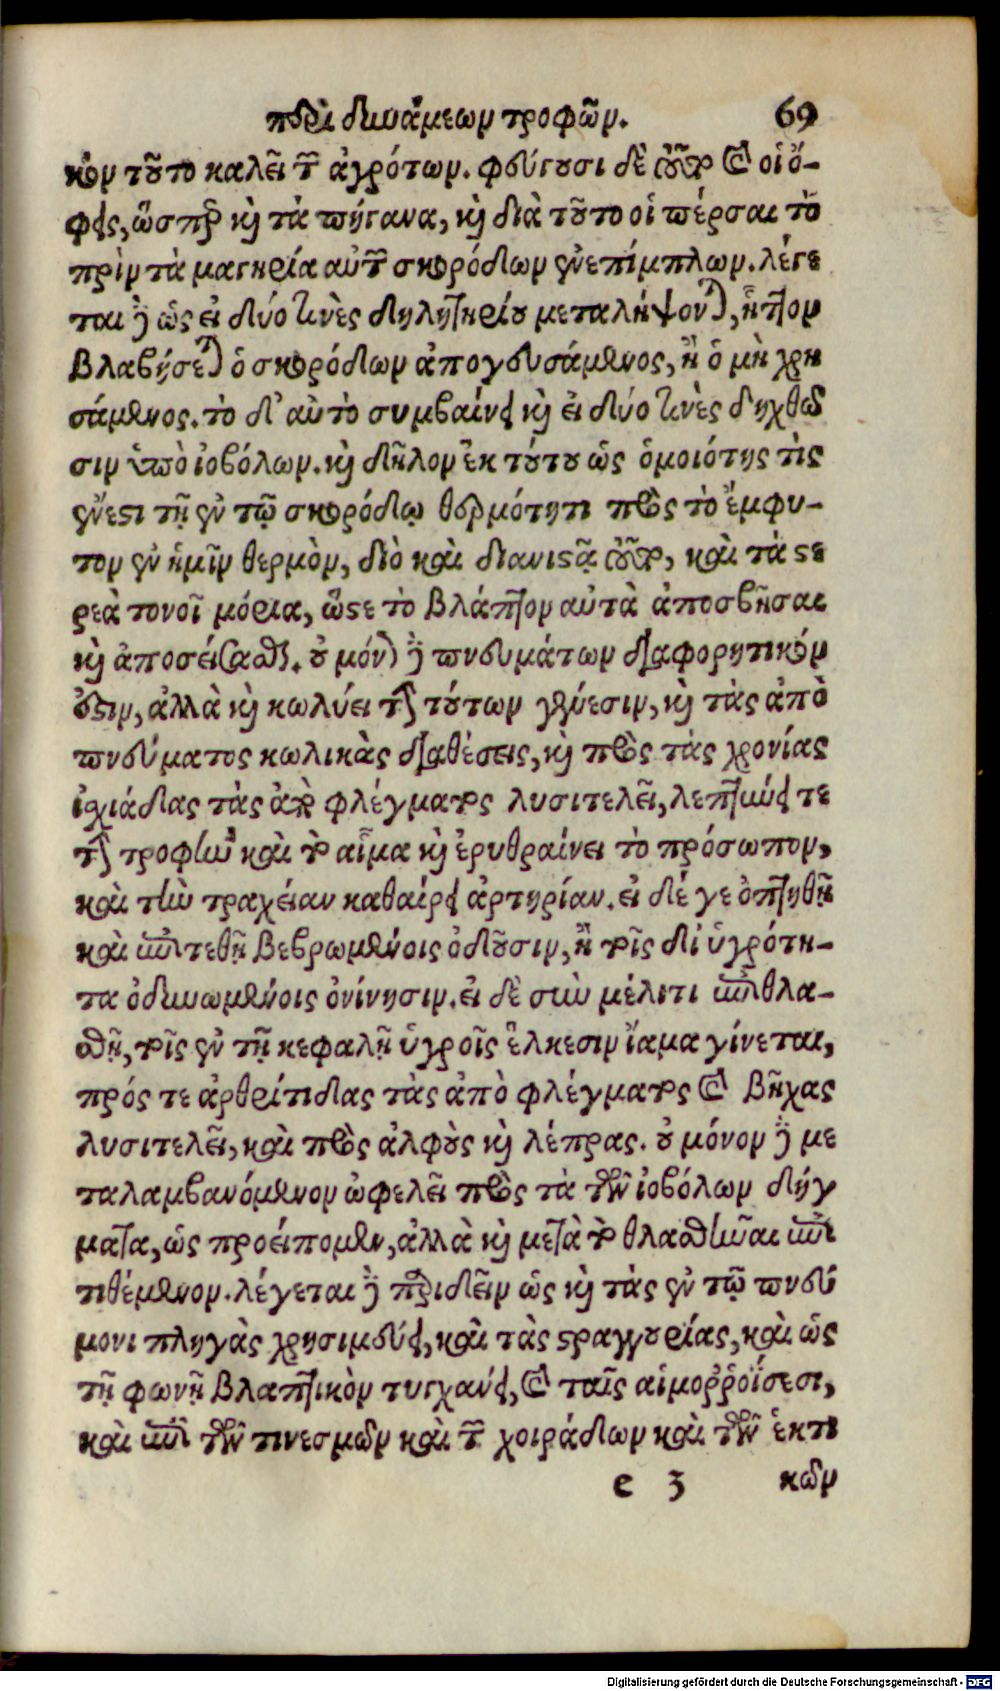 περὶ δυνάμεων τροφῶν. 69
κὸν τοῦτο καλεῖ τῶν ἀγρότων. φεύγουσι δὲ αὐτὸ καὶ οἱ ὄ-
φεις, ὥσπερ καὶ τὰ πήγανα, καὶ διὰ τοῦτο οἱ πέρσαι τὸ
πρὶν τὰ μαγειρεῖα αὐτῶν σκορόδων ἐνεπίμπλων. λέγε
ται δὲ ὡς εἰ δύο τινὲς δηλητηρίου μεταλήψονται, ἧττον
βλαβήσεται ὁ σκορόδων ἀπογευσάμενος, ἢ ὁ μὴ χρη
σάμενος. τὸ δ' αὐτὸ συμβαίνει καὶ εἰ δύο τινὲς δηχθῶ
σιν ὑπὸ ἰοβόλων. καὶ δῆλον ἐκ τούτου ὡς ὁμοιότης τὶς
ἔνεστι τῇ ἐν τῷ σκορόδῳ θερμότητι πρὸς τὸ ἔμφυ-
τον ἐν ἡμῖν θερμὸν, διὸ καὶ διανιστᾷ αὐτὸ, καὶ τὰ στε
ρεὰ τονοῖ μόρια, ὥστε τὸ βλάπτον αὐτὰ ἀποσβῆσαι
καὶ ἀποσείσασθαι. οὐ μόνον δὲ πνευμάτων διαφορητικόν
ἐστιν, ἀλλὰ καὶ κωλύει τὴν τούτων γένεσιν, καὶ τὰς ἀπὸ
πνεύματος κωλικὰς διαθέσεις, καὶ πρὸς τὰς χρονίας
ἰσχιάδας τὰς ἀπὸ φλέγματος λυσιτελεῖ, λεπτύνει τε
τὴν τροφὴν καὶ τὸ αἷμα καὶ ἐρυθραίνει τὸ πρόσωπον,
καὶ τὴν τραχεῖαν καθαίρει ἀρτηρίαν. εἰ δέ γε ὀπτηθῇ
καὶ ἐπιτεθῇ βεβρωμένοις ὀδοῦσιν, ἢ τοῖς δι' ὑγρότη-
τα ὀδυνωμένοις ὀνίνησιν. εἰ δὲ σὺν μέλιτι ἐπιθλα-
σθῇ, τοῖς ἐν τῇ κεφαλῇ ὑγροῖς ἕλκεσιν ἴαμα γίνεται,
πρός τε ἀρθρίτιδας τὰς ἀπὸ φλέγματος καὶ βῆχας
λυσιτελεῖ, καὶ πρὸς ἀλφοὺς καὶ λέπρας. οὐ μόνον δὲ με
ταλαμβανόμενον ὠφελεῖ πρὸς τὰ τῶν ἰοβόλων δήγ
ματα, ὡς προείπομεν, ἀλλὰ καὶ μετὰ τὸ θλασθῆναι ἐπι
τιθέμενον. λέγεται δὲ περιδεῖν ὡς καὶ τὰς ἐν τῷ πνεύ
μονι πληγὰς χρησιμεύει, καὶ τὰς στραγγουρίας, καὶ ὡς
τῇ φωνῇ βλαπτικὸν τυγχάνει, καὶ ταῖς αἱμορῥοΐσεσι,
καὶ ἐπὶ τῶν τινεσμῶν καὶ τῶν χοιράδων καὶ τῶν ἑκτι
e 3 κῶν
Digitalisierung gefördert durch die Deutsche Forschungsgemeinschaft - DFG